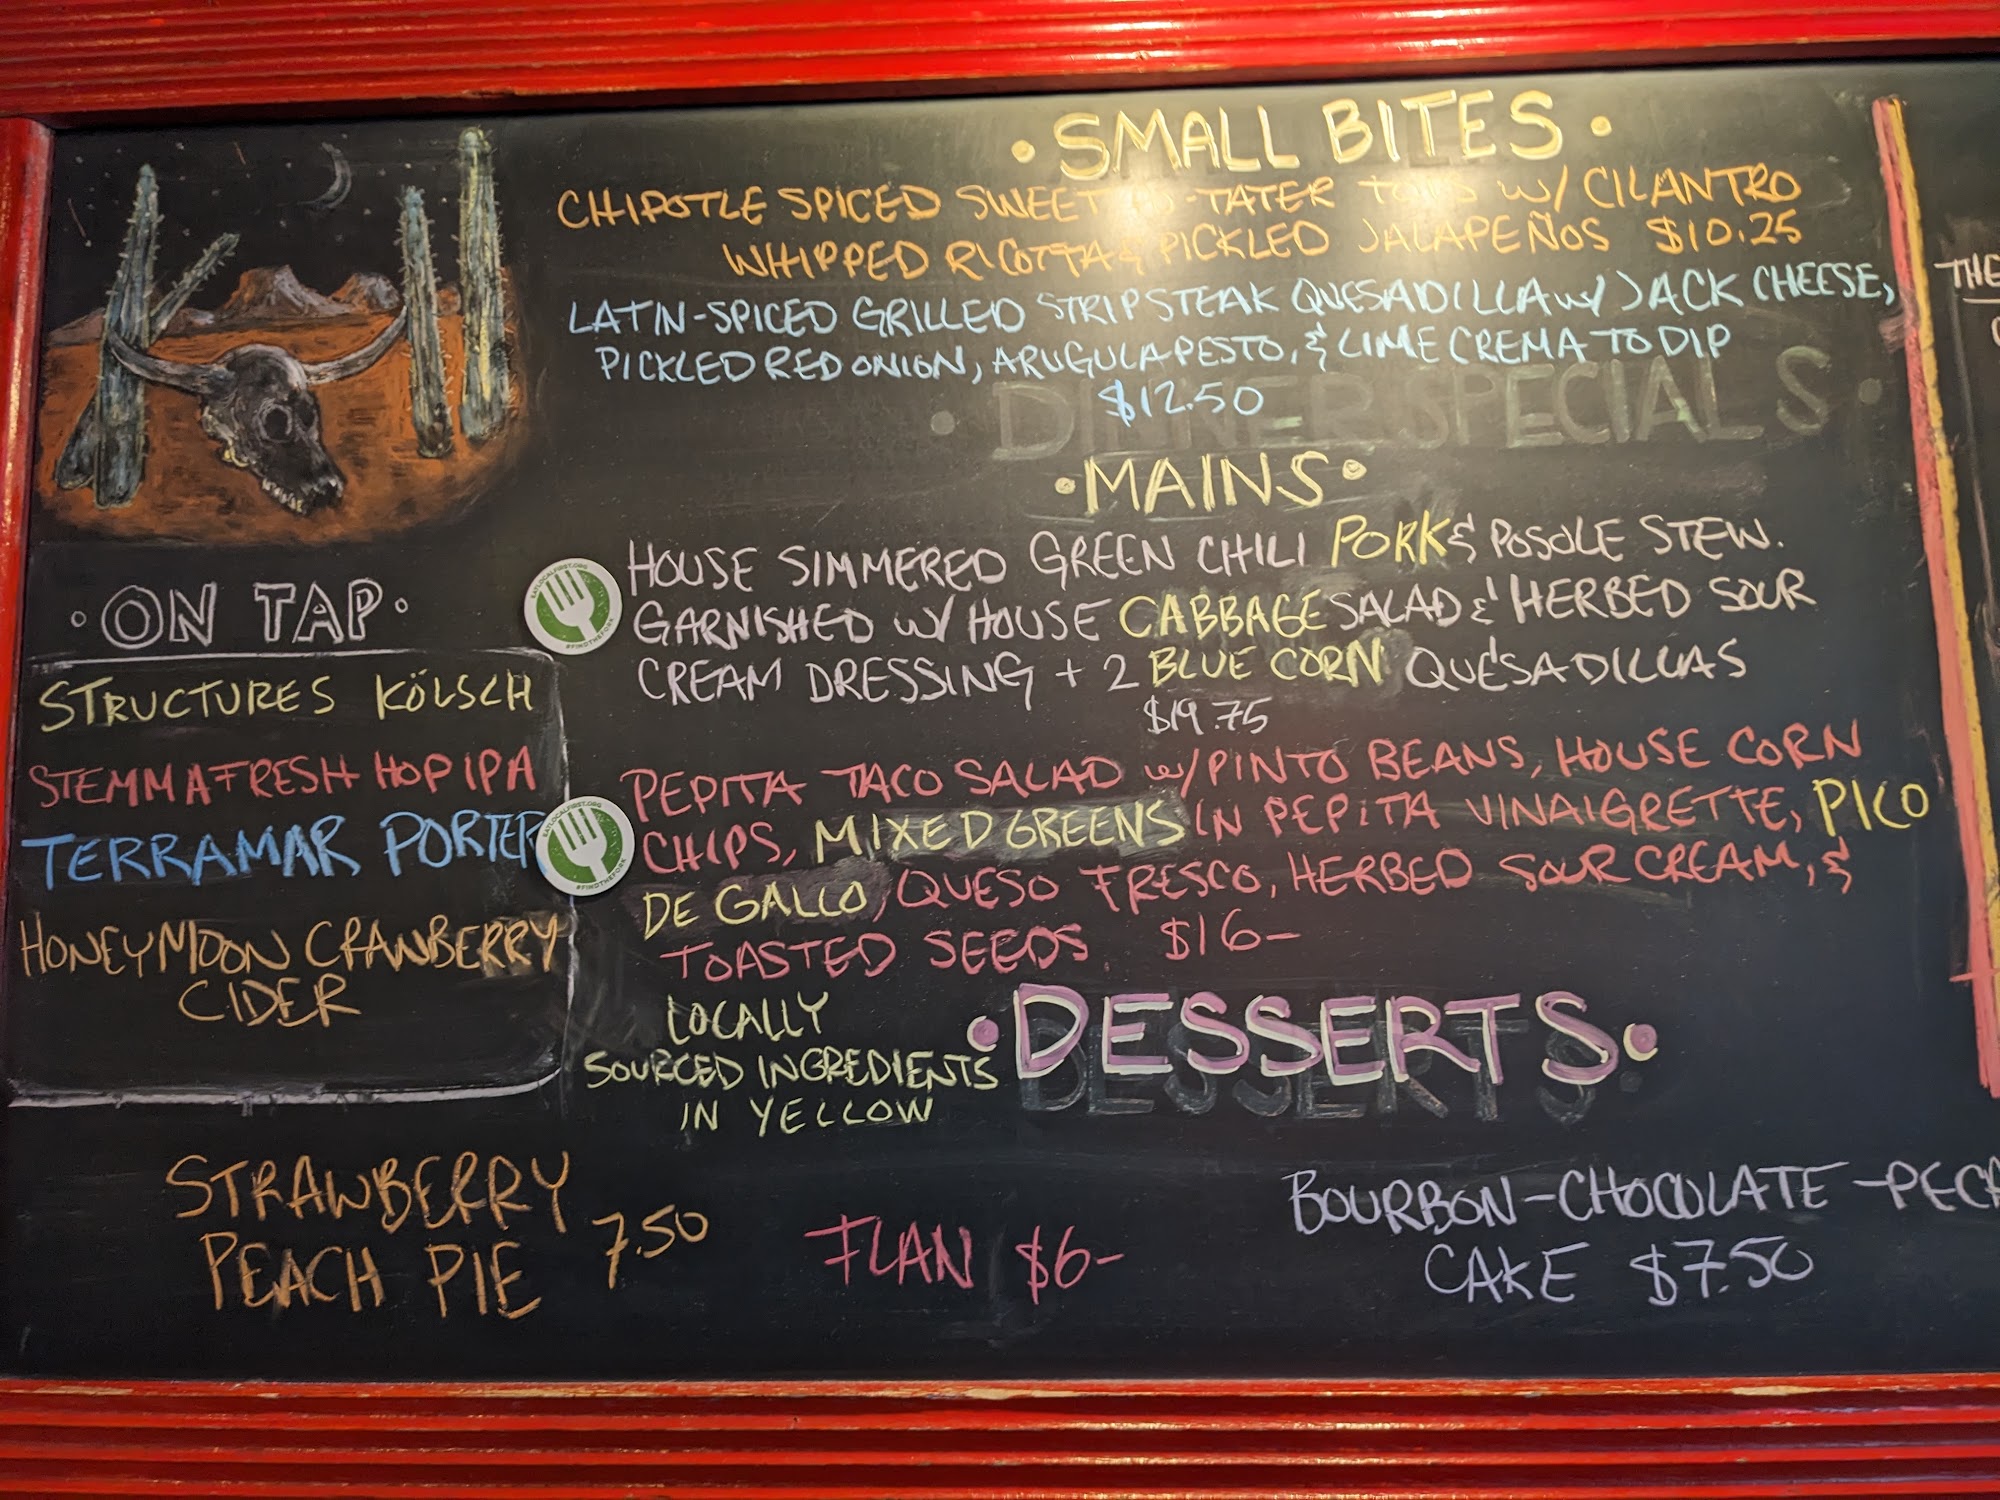 • SMALL BITES •
CHIPOTLE SPICED SWEET PO-TATER TOTS W/ CILANTRO
WHIPPED RICOTTA & PICKLED JALAPEÑOS $10.25
LATIN-SPICED GRILLED STRIP STEAK QUESADILLA W/ JACK CHEESE,
PICKLED RED ONION, ARUGULA PESTO, & LIME CREMA TO DIP
$12.50
• DINNER SPECIALS •
• MAINS •
HOUSE SIMMERED GREEN CHILI PORK & POSOLE STEW.
GARNISHED W/ HOUSE CABBAGE SALAD & HERBED SOUR
CREAM DRESSING + 2 BLUE CORN QUESADILLAS
$19.75
PEPITA TACO SALAD W/ PINTO BEANS, HOUSE CORN
CHIPS, MIXED GREENS IN PEPITA VINAIGRETTE, PICO
DE GALLO, QUESO FRESCO, HERBED SOUR CREAM, &
TOASTED SEEDS. $16-
LOCALLY
SOURCED INGREDIENTS
IN YELLOW
• ON TAP •
STRUCTURES KÖLSCH
STEMMA FRESH HOP IPA
TERRAMAR PORTER
HONEYMOON CRANBERRY
CIDER
EATLOCALFIRST.ORG
#FINDTHEFORK
EATLOCALFIRST.ORG
#FINDTHEFORK
• DESSERTS •
DESSERTS
STRAWBERRY
PEACH PIE 7.50
FLAN $6-
BOURBON-CHOCOLATE-PECA
CAKE $7.50
THE